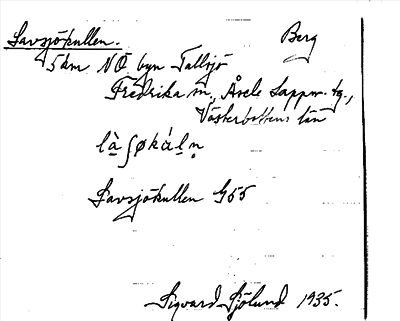 Lavsjökullen. Berg
5 km NÖ byn Tallsjö
Fredrika sn., Åsele Lappm. tg.,
Västerbottens län
là̠ʃøkál̠n̥
Lavsjökullen G55
Sigvard Sjölund 1935.